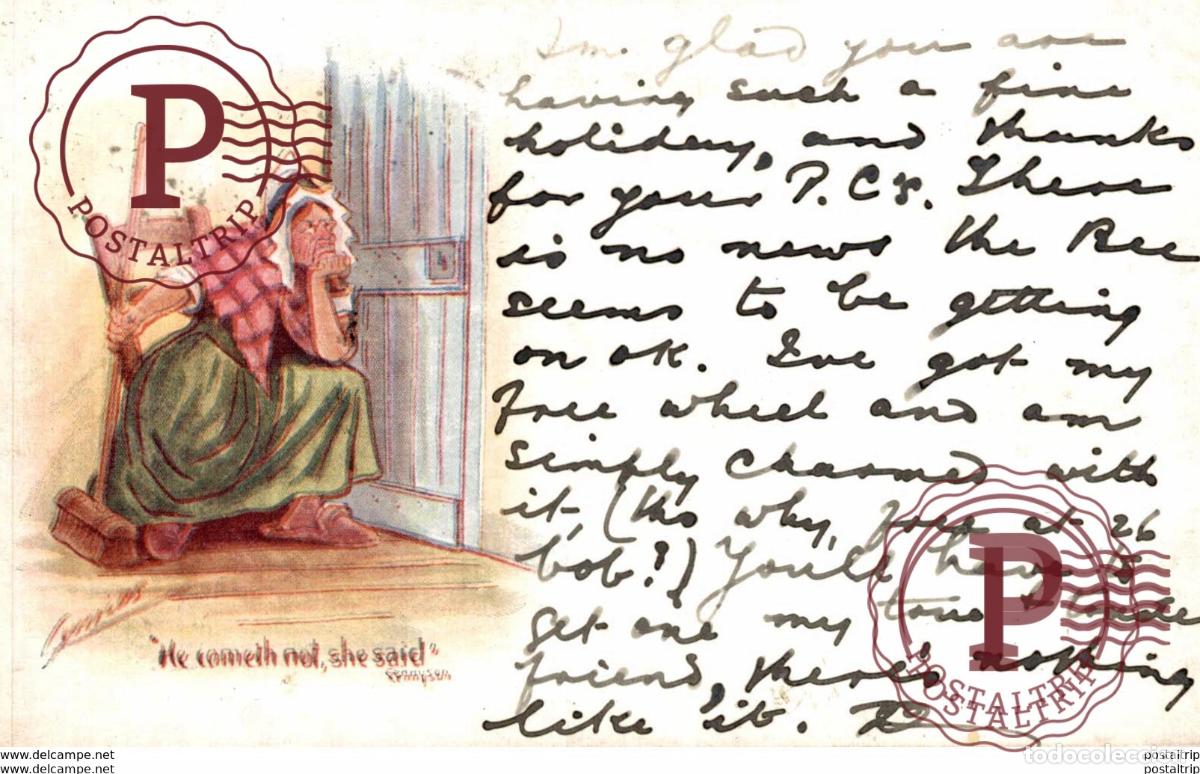 P
POSTALTRIP
"He cometh not, she said"
TENNYSON
I'm glad you are
having such a fine
holiday, and thanks
for your P.C's. There
is no news the Bee
seems to be getting
on ok. I've got my
free wheel and am
simply charmed with
it, (tho why, free at 26
bob?) You'll have to
get one my
friend, there's nothing
like it.
P
POSTALTRIP
todocoleccion
www.delcampe.net
postaltrip
www.delcampe.net
postaltrip